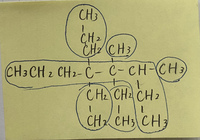 CH₃
CH₂
CH₂ CH₃
CH₃CH₂ CH₂- C - C - CH- CH₃
CH₂ CH₂ CH₂
CH₂ CH₃ CH₃